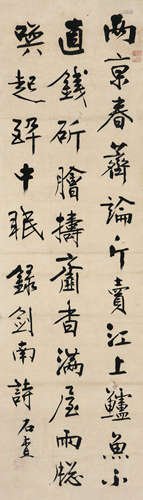 兩京春薺論斤賣江上鱸魚不
直錢斫膾擣齏香滿屋雨牕
喚起醉中眠 錄劍南詩 石查